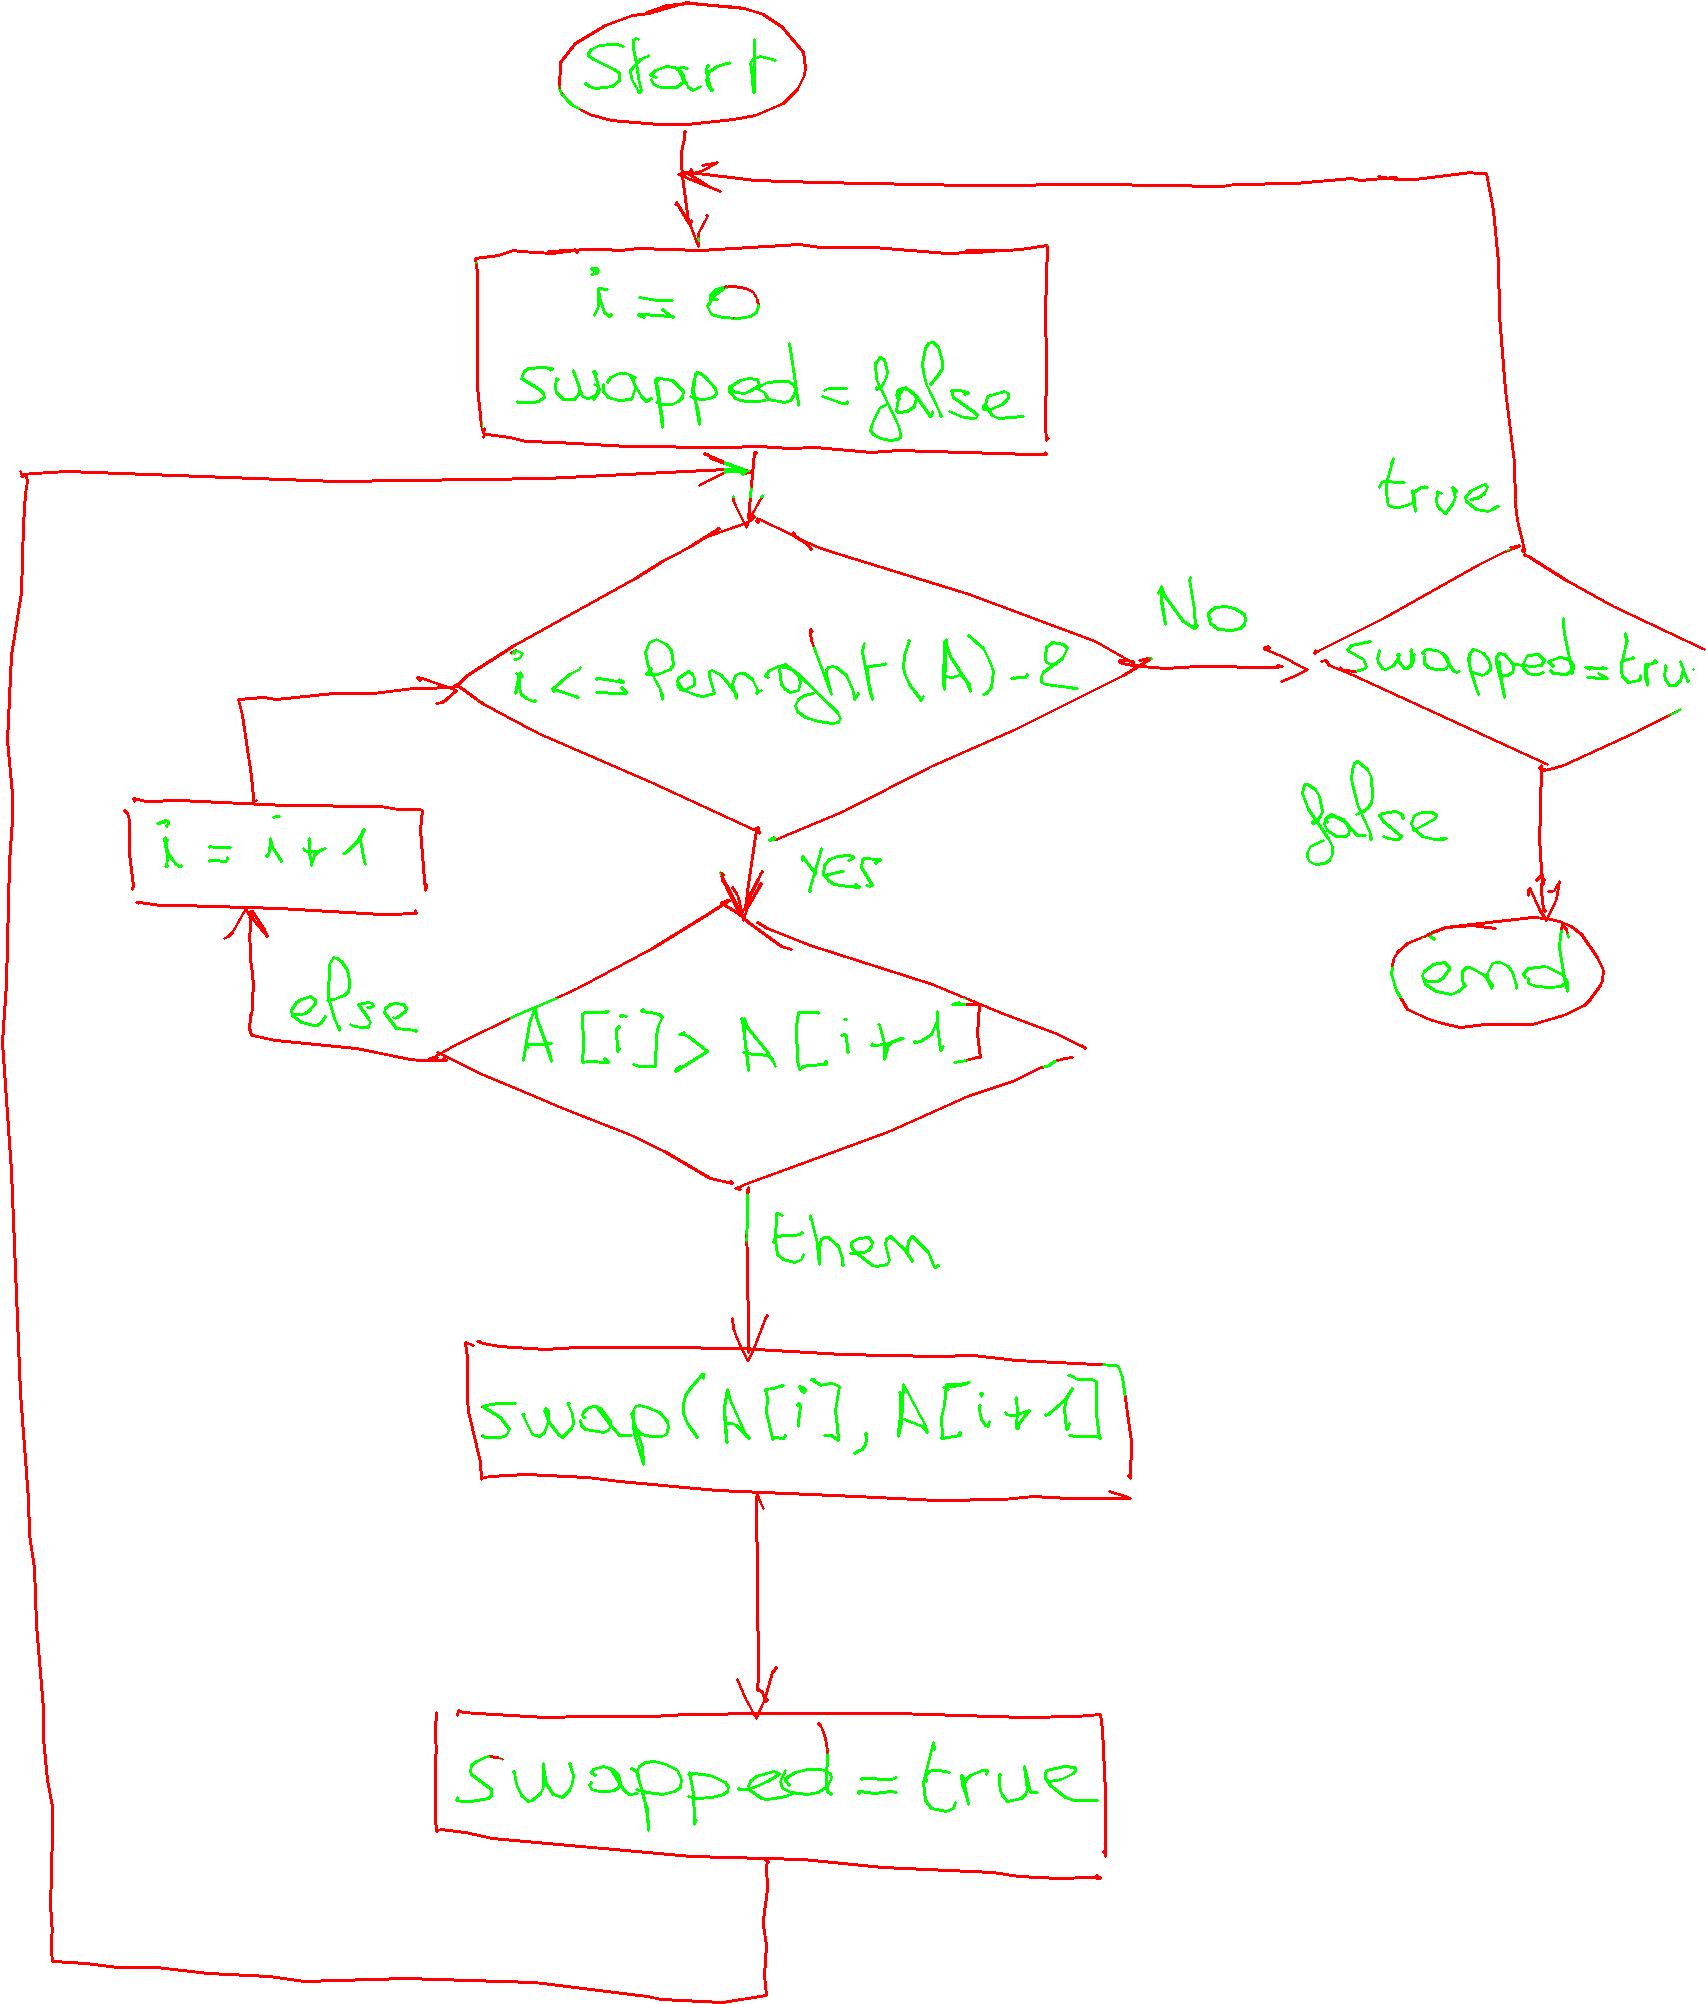 Start
i = 0
swapped = false
true
No
i <= lenght(A) - 2
swapped = tru
i = i + 1
false
YES
end
else
A[i] > A[i+1]
then
swap(A[i], A[i+1]
swapped = true